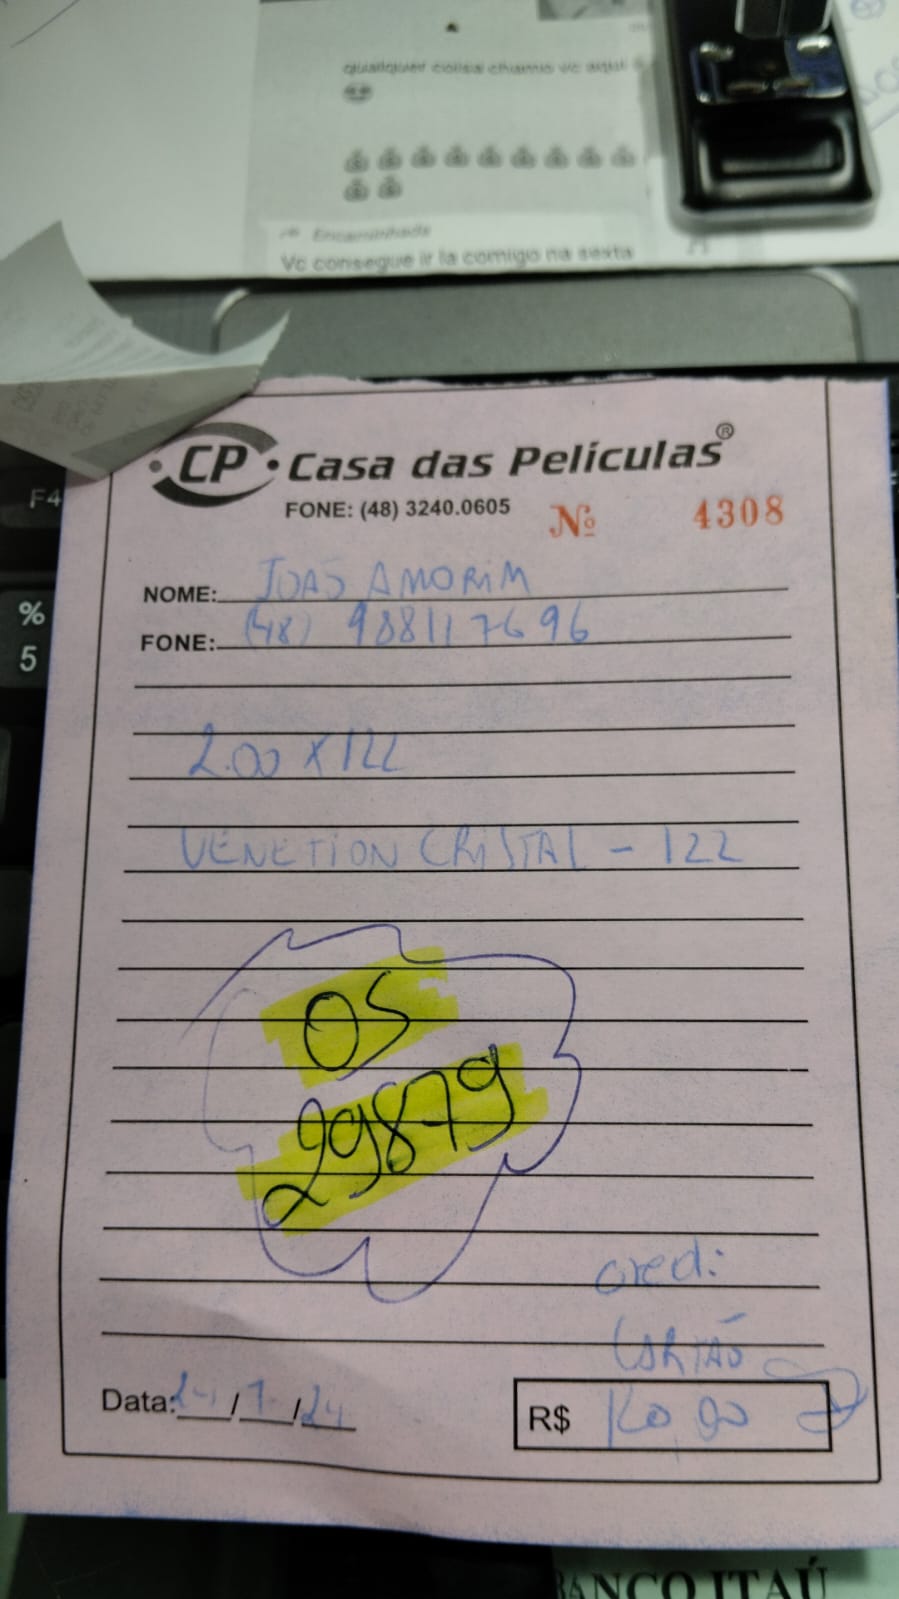 qualquer coisa chamo vc aqui
Encaminhada
Vc consegue ir la comigo na sexta
F4
%
5
CP Casa das Películas®
FONE: (48) 3240.0605 Nº 4308
NOME: JOAS AMORIM
FONE: (48) 988117696
2.00 X 122
VENETION CRISTAL - 122
OS
29879
cred:
CARTÃO
Data: 24/7/24
R$
BANCO ITAÚ